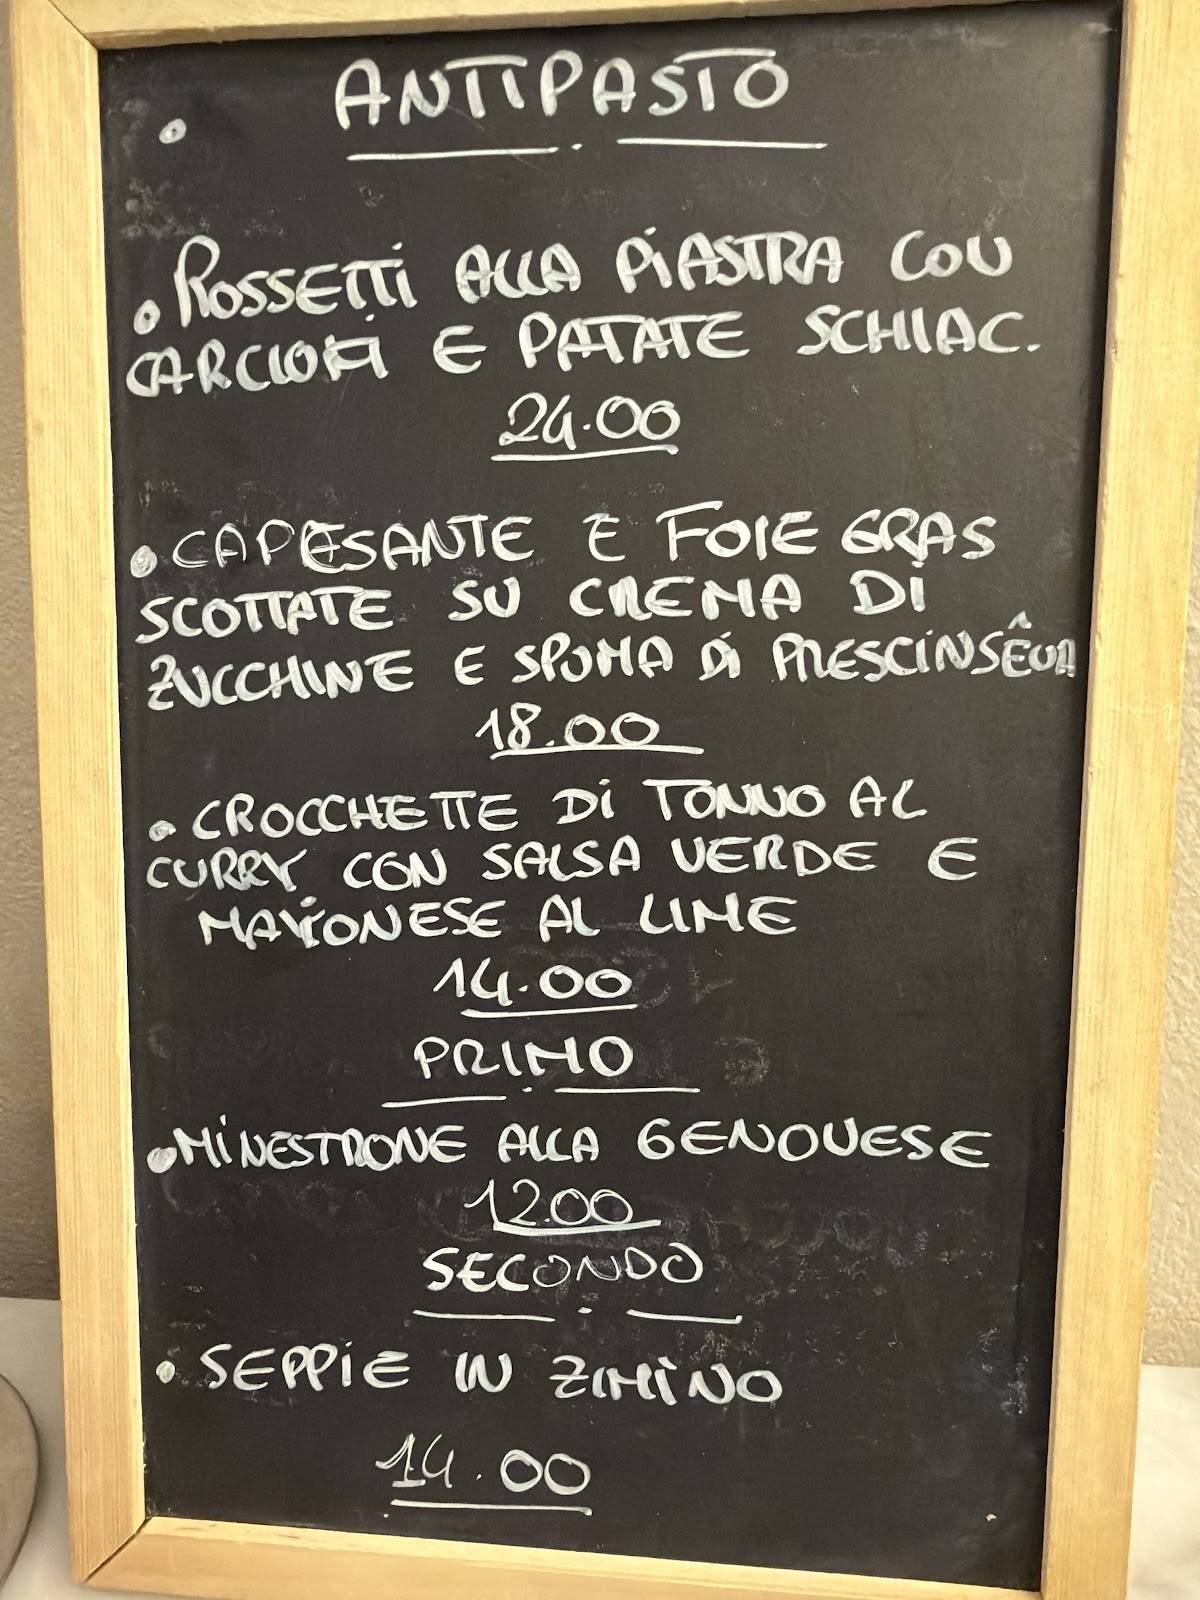 ANTIPASTO
• ROSSETTI ALLA PIASTRA CON
CARCIOFI E PATATE SCHIAC.
24.00
• CAPESANTE E FOIE GRAS
SCOTTATE SU CREMA DI
ZUCCHINE E SPUMA DI PRESCINSÊUA
18.00
• CROCCHETTE DI TONNO AL
CURRY CON SALSA VERDE E
MAYONESE AL LIME
14.00
PRIMO
• MINESTRONE ALLA GENOVESE
12.00
SECONDO
• SEPPIE IN ZIMINO
14.00